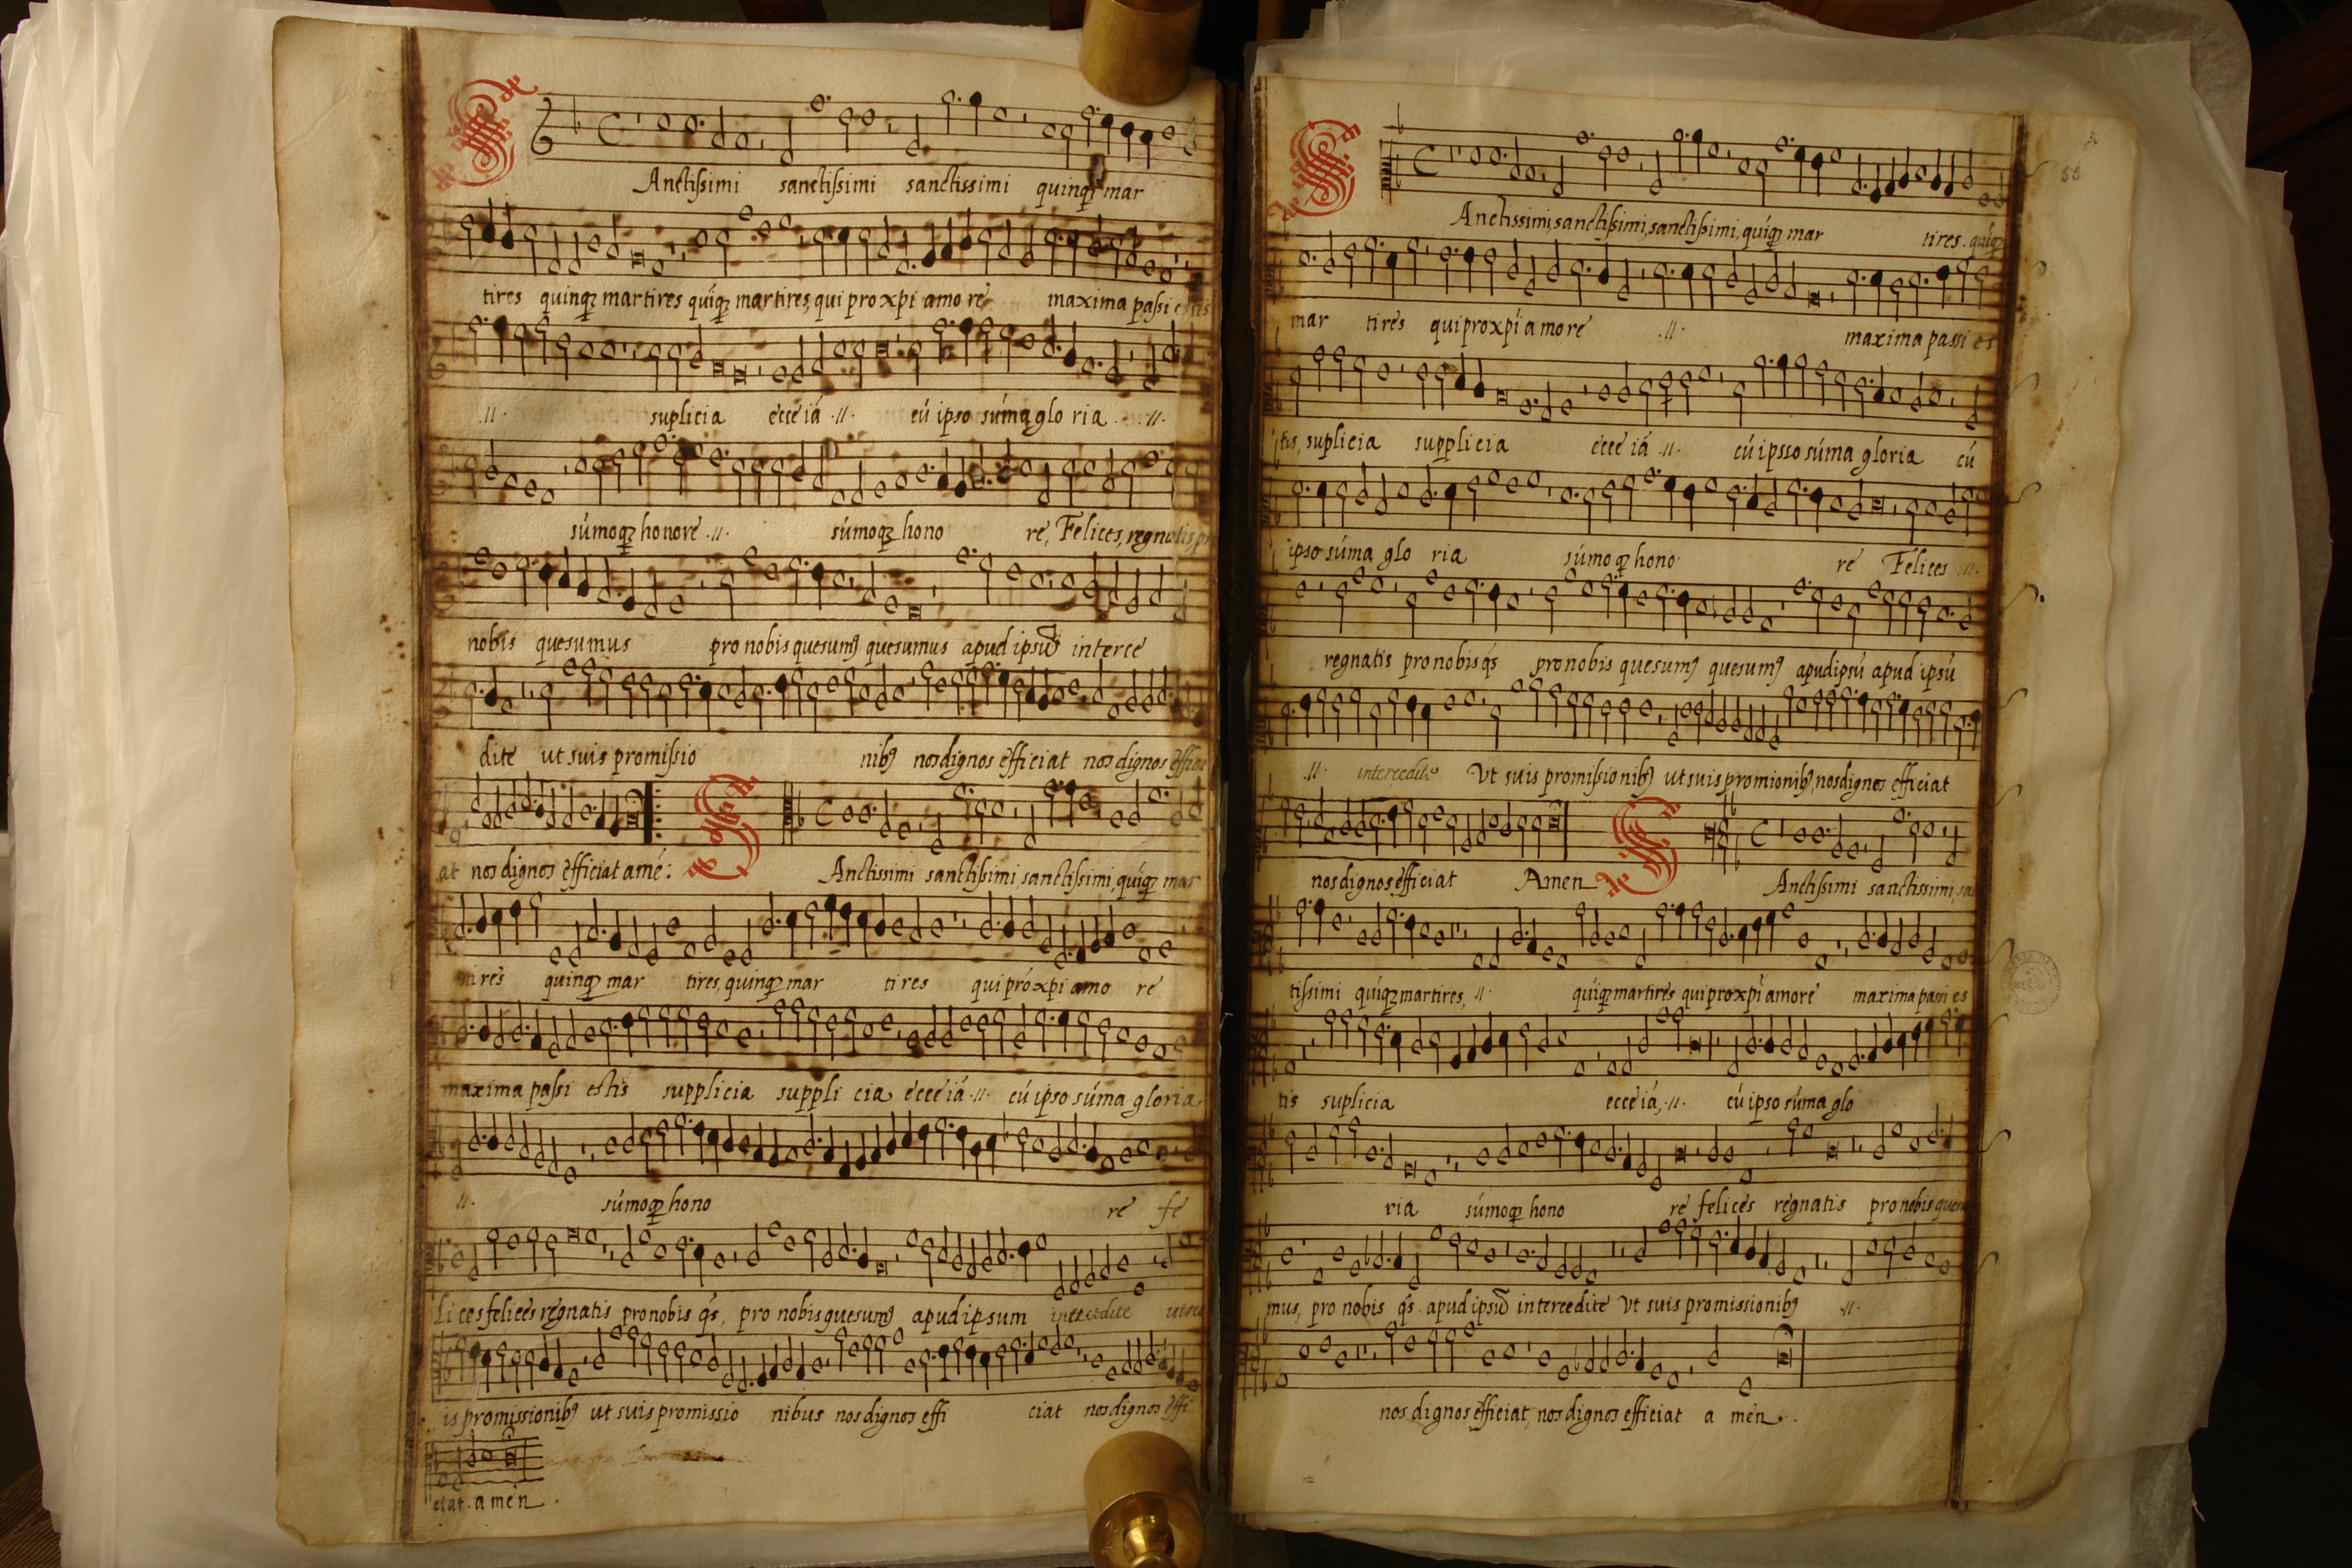 Anctissimi sanctissimi sanctissimi quinqꝫ mar
tires quinqꝫ martires quíqꝫ martires, qui pro xpi amo re maxima passi estis
.//. suplicia ecce iá .//. cú ipso súma glo ria .//.
súmoqꝫ honore .//. súmoqꝫ hono re, Felices, regnatis, pro
nobis quesumus pro nobis quesumꝰ quesumus apud ipsū interce
dite ut suis promissio nibꝰ nos dignos efficiat nos dignos effici
at nos dignos efficiat amé:
S Anctissimi sanctissimi, sanctissimi, quíqꝫ mar
tires quinqꝫ mar tires, quinqꝫ mar tires qui pró xpi amo re
maxima passi estis supplicia suppli cia ecce iá .//. cú ipso súma gloria
.//. súmoqꝫ hono re fe
li ces felices regnatis pro nobis qs̄, pro nobis quesumꝰ apud ipsum intercedite ut su
is promissionibꝰ ut suis promissio nibus nos dignos effi ciat nos dignos effi
ciat. amen.
55
S Anctissimi, sanctissimi, sanctissimi, quíqꝫ mar tires. quíqꝫ
mar tires qui pro xpí amore .//. maxima passi es
tis, suplicia supplicia ecce iá .//. cú ipsso súma gloria cú
ipso súma glo ria súmoqꝫ hono re Felices .//.
regnatis pro nobis qs̄ pro nobis quesumꝰ quesumꝰ apud ipsú apud ipsú
.//. intercedite Ut suis promissionibꝰ ut suis promionibꝰ, nos dignos efficiat
nos dignos efficiat Amen
S Anctissimi sanctissimi, sac
tissimi quíqꝫ martires, .//. quíqꝫ martires qui pro xpí amore maxima passi es
tis suplicia ecce iá, .//. cú ipso súma glo
ria súmoqꝫ hono re felices regnatis pro nobis quesu
mus, pro nobis qs̄ apud ipsū intercedite Ut suis promissionibꝰ .//.
nos dignos efficiat, nos dignos efficiat a men.